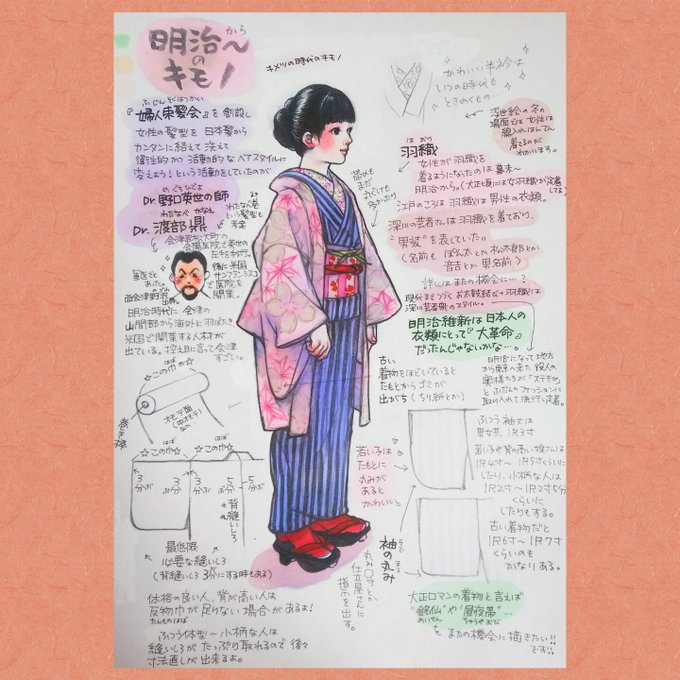 明治〜から
の
キモノ
キメツの時代のキモノ
かわいい半衿は
いつの時代も
ときめくもの…
浮世絵の冬の
場面では女性は
着るのが
わかります。
ふじんそくはつかい
『婦人束髪会』を創設し
女性の髪型を日本髪から
カンタンに結えて洗えて
衛生的かつ活動的なヘアスタイルに
変えよう!という活動をしていたのが
のぐちひでよ
Dr.野口英世の師
わたなべ かなえ
Dr.渡部鼎
わたなべ巻
という髪型も
考案
会津若松大町の
会陽医院で英世の
左手を執刀。
軍医とも
あった。
後に米国
サンフランシスコ
で医院を
開業。
西会津町野沢
出身。
明治時代に会津の
山間部から海外に羽ばたき
米国で開業する人材が
出ている。控え目に言って会津
すごい。
帯もも
まだ
丸くても
はおり
羽織
女性が羽織を
着るようになったのは幕末〜
明治から。(大正頃には女羽織が定着
してる)
江戸のころは羽織は男性の衣類。
深川の芸者さんは羽織を着ており、
“男髪”を表していた。
(名前もぽん太とか松太郎とか
音吉とか男名前)
詳しくはまたの機会に…?
現代まで続くお太鼓結び+羽織は
深川芸者衆のスタイル。
明治維新は日本人の
衣類にとって『大革命』
だったんじゃないかな…。
明治になって地方
から東京へ来た役人の
奥様たちが「ステキ♡」
とふだんのファッションに
取り入れて流行し定着。
古い
着物をほどいていると
たもとからゴミが
出がち(ちり紙とか)
☆この巾☆
はば
巻き棒
☆この巾☆
はば
☆この巾☆
はば
3分
3分
3分
5分
5分
背縫いしろ
最低限
必要な縫いしろ
(背縫いしろ3分にする時もある)
体格の良い人、背が高い人は
反物巾が足りない場合があるよ!
たんものはば
ふつう体型〜小柄な人は
縫いしろがたっぷり取れるので後々
寸法直しが出来るよ。
若い子は
たもとに
丸みが
あると
かわいい。
袖の丸み
そで
まる
丸み○寸とか
仕立屋さんに
指示を出す。
ふつう袖丈は
男女共、1尺3寸
若い子や背の高い娘さんは
1尺4寸〜1尺5寸くらいに
したり、小柄な人は
1尺2寸〜1尺2寸5分
くらいに
したりもする。
古い着物だと
1尺6寸〜1尺7寸
くらいのも
かなりある。
大正ロマンの着物と言えば
“銘仙”や“昼夜帯”…
めいせん
ちゅうやおび
またの機会に描きたい!!
です!!